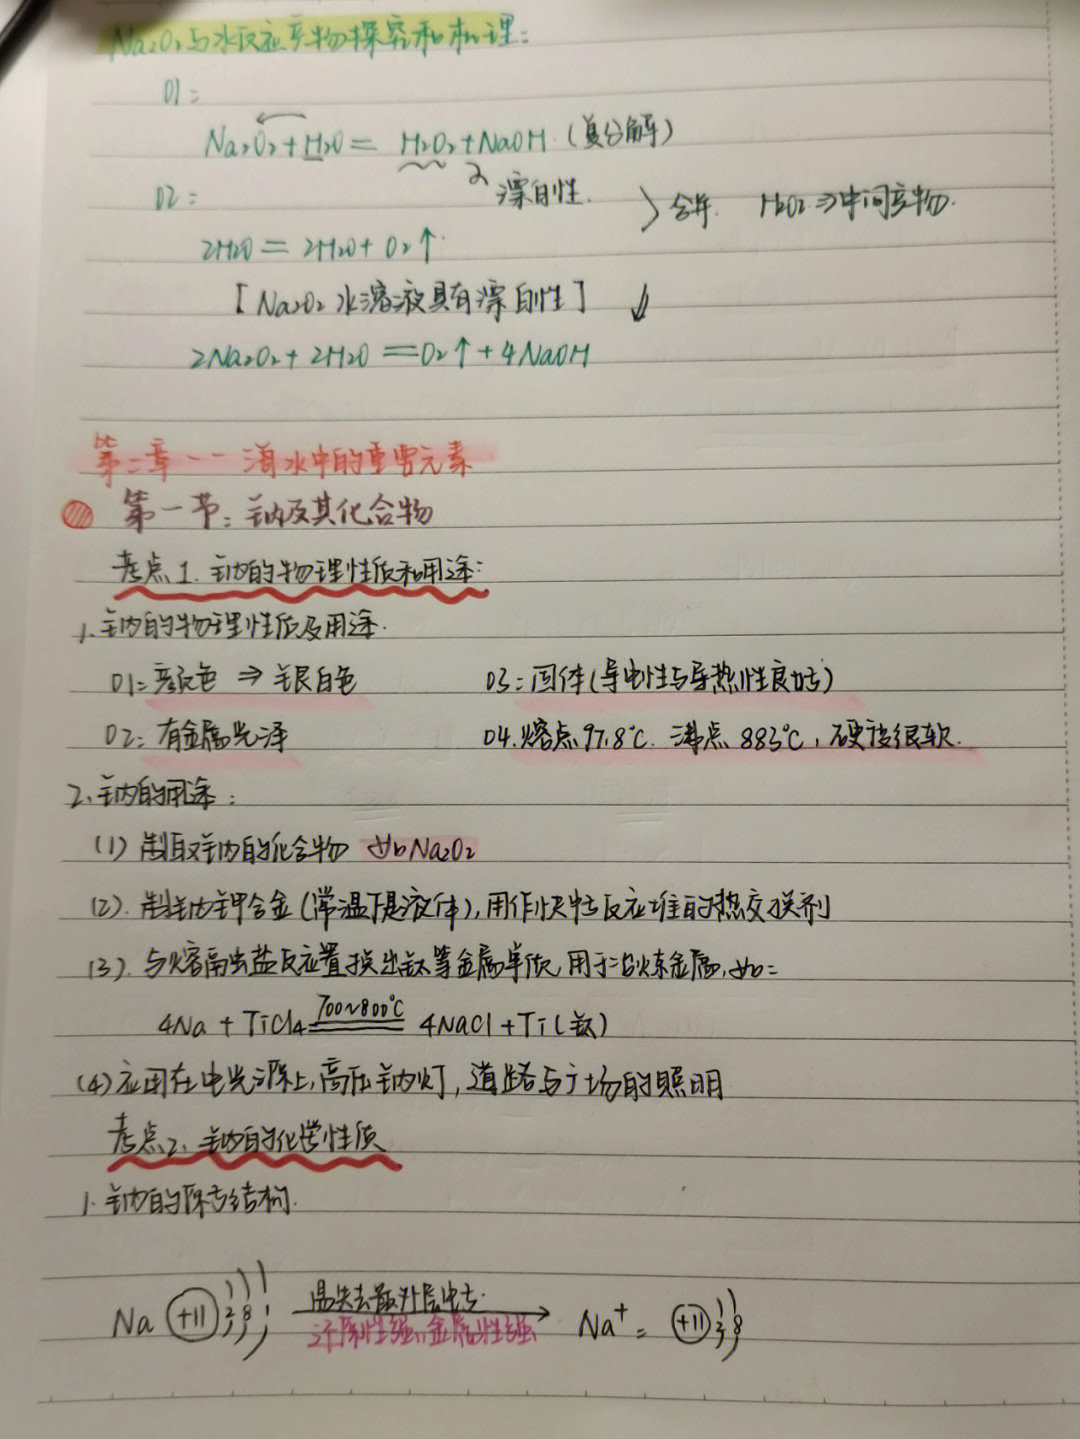 Na₂O₂与水反应产物探究和机理:
01:
Na₂O₂+H₂O = H₂O₂+NaOH (复分解)
02: 2 漂白性. 合并. H₂O₂⇒中间产物.
2H₂O = 2H₂O+O₂↑
[Na₂O₂水溶液具有漂白性] ↓
2Na₂O₂+2H₂O = O₂↑+4NaOH
第二章--海水中的重要元素
第一节:钠及其化合物
考点1.钠的物理性质和用途:
1.钠的物理性质及用途.
01:颜色⇒银白色 03:固体(导电性与导热性良好)
02:有金属光泽 04.熔点97.8℃.沸点883℃,硬度很软.
2.钠的用途:
(1)制取钠的化合物 如Na₂O₂
(2).制钠钾合金(常温下是液体),用作快中子反应堆的热交换剂
(3).与熔融盐反应置换出钛等金属单质,用于冶炼金属,如:
4Na+TiCl₄ =700~800℃= 4NaCl+Ti(钛)
(4)应用在电光源上,高压钠灯,道路与广场的照明
考点2.钠的化学性质
1.钠的原子结构.
Na (+11) 2 8 1 易失去最外层电子. → Na⁺ = (+11) 2 8
还原性强,金属性强